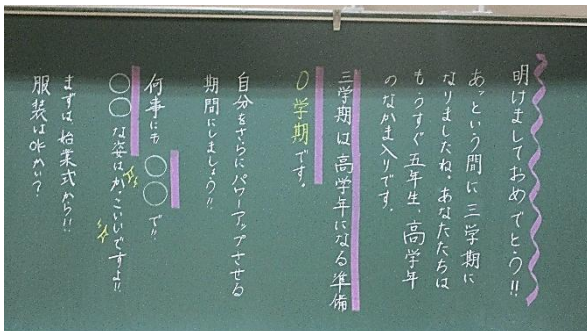 明けましておめでとう!!
あっという間に三学期に
なりましたね。あなたたちは
もうすぐ五年生、高学年
のなかま入りです。
三学期は高学年になる準備
０学期です。
自分をさらにパワーアップさせる
期間にしましょう!!
何事にも〇〇で!!
〇〇な姿はかっこいいですよ!!
まずは始業式から!!
服装はOKかい？